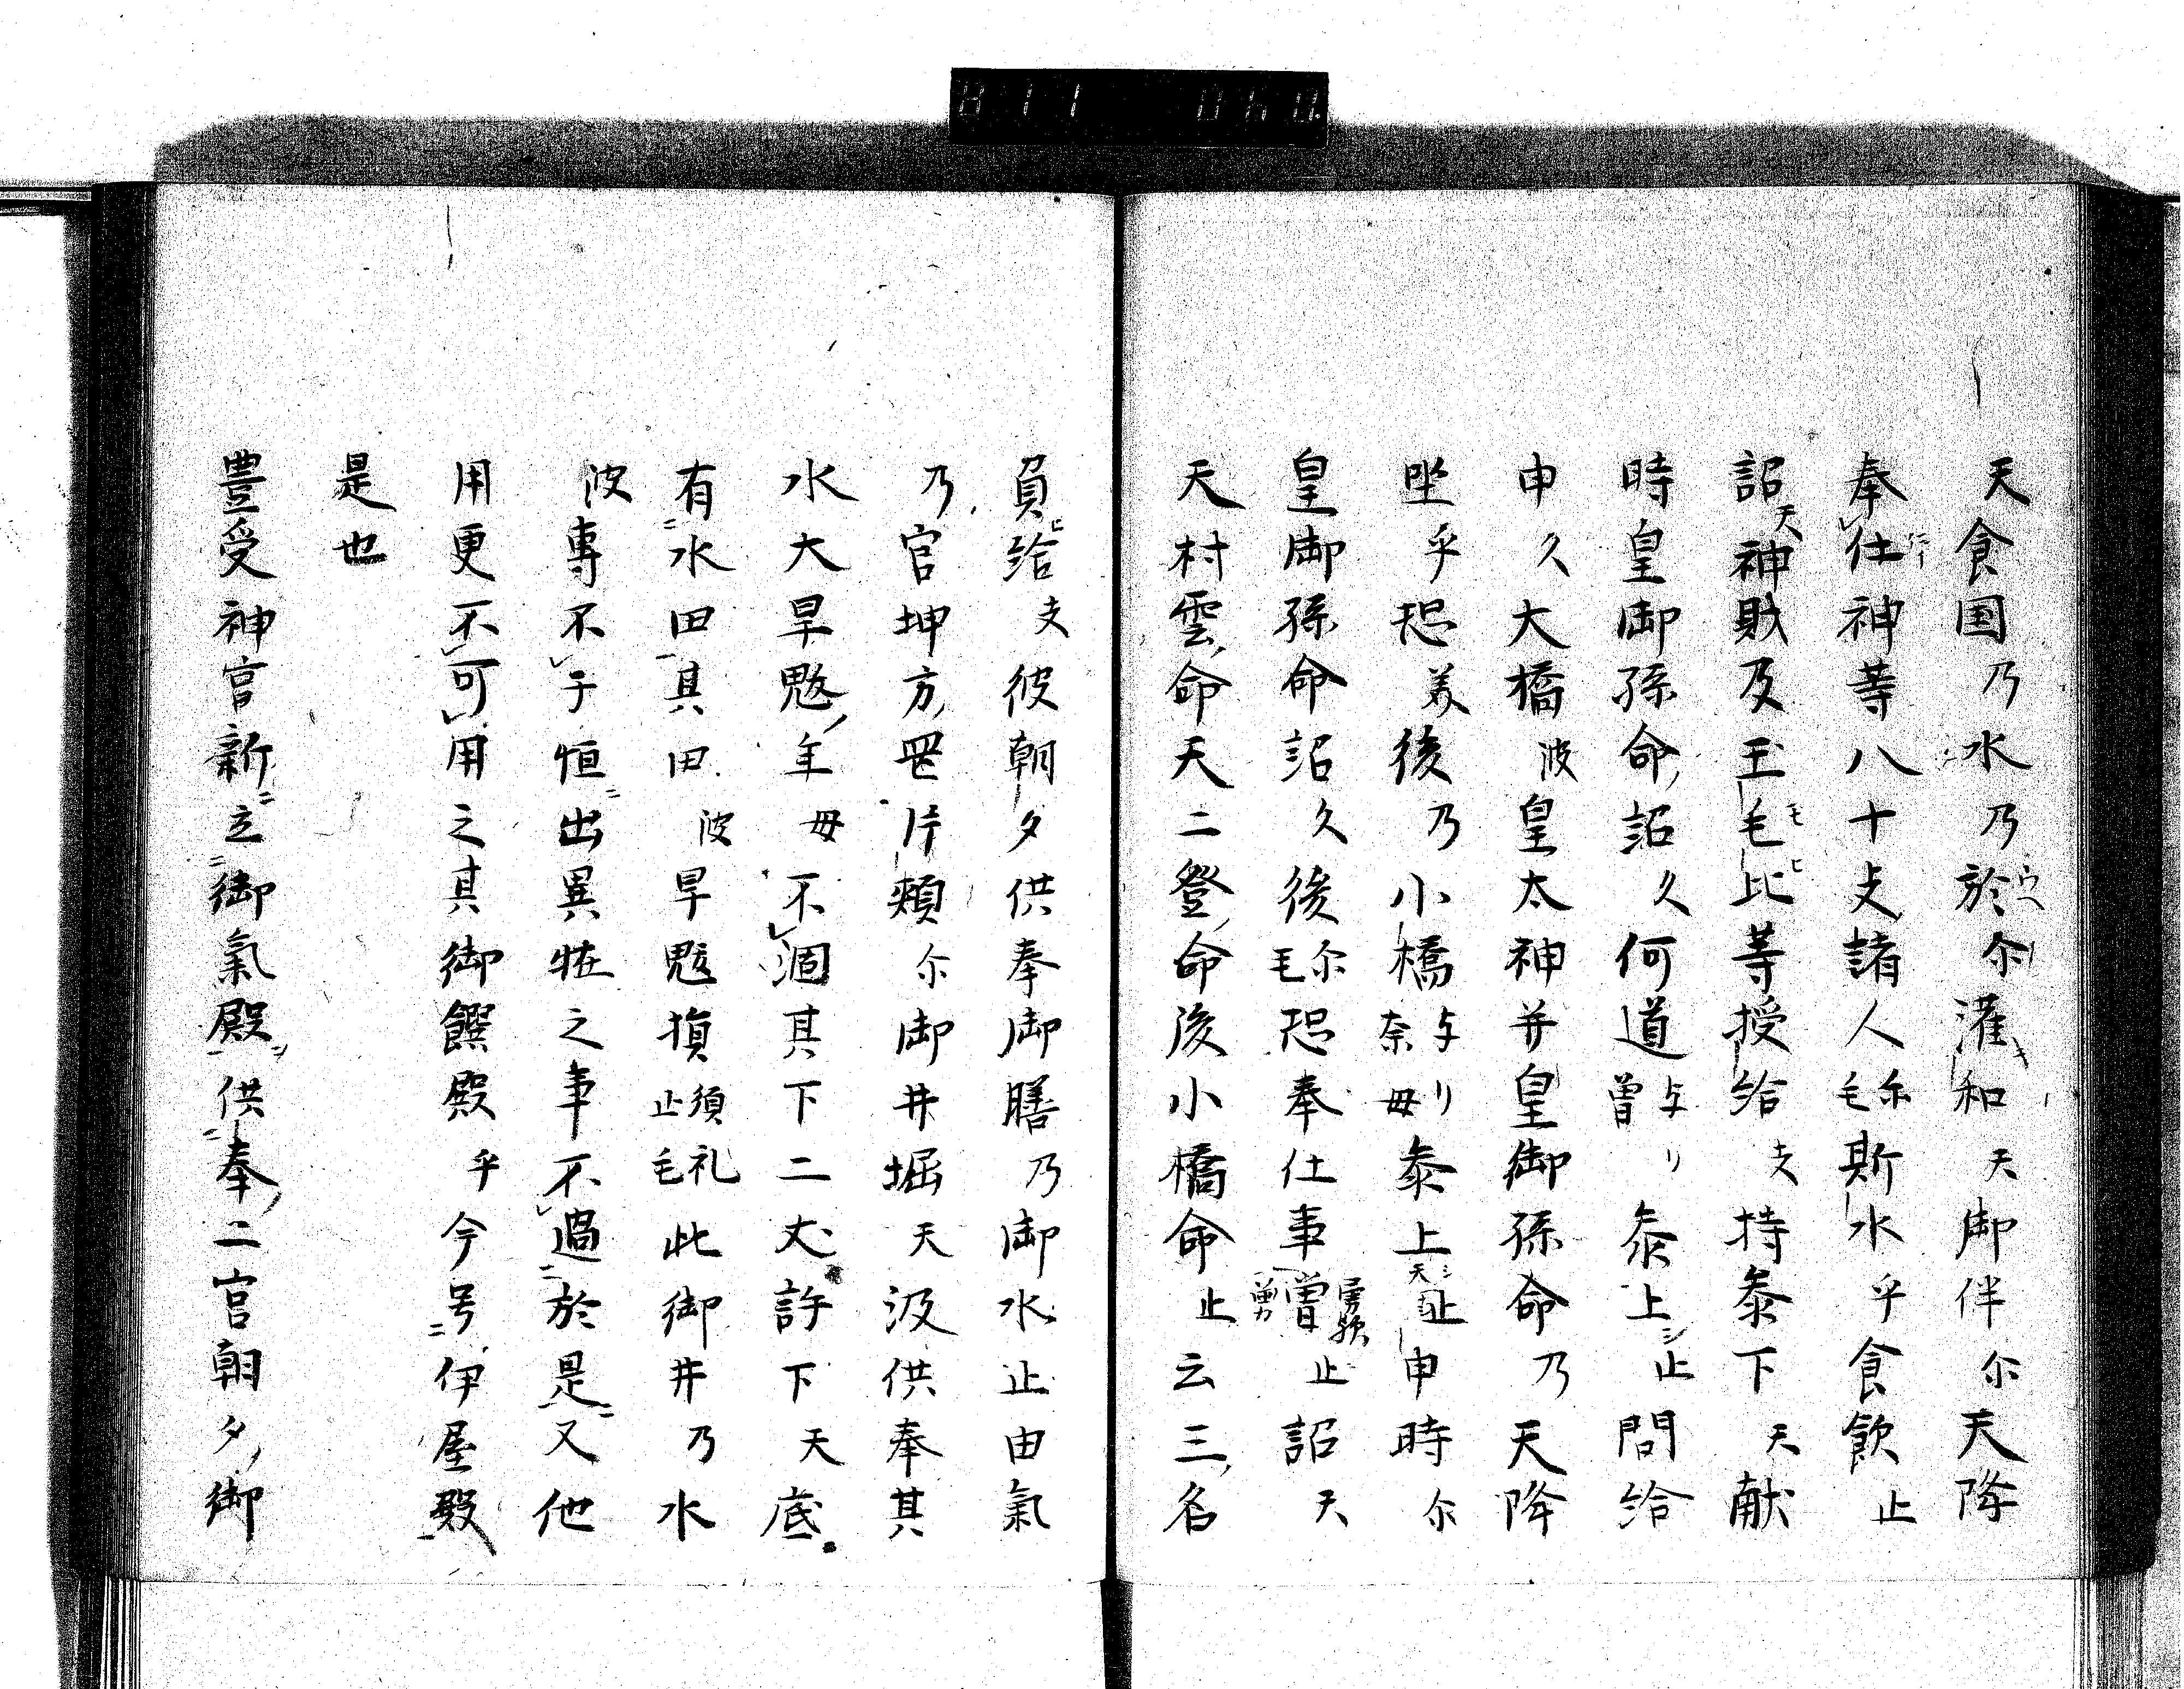 天食国乃水乃於尓灌和天御伴尓天降
奉仕神等八十支諸人尓毛斯水乎食飲止
詔天神財及玉毛比等授給支持泰下天献
時皇御孫命詔久何道与リ曽泰上止問給
申久大橋波皇太神并皇御孫命乃天降
坐乎恐美後乃小橋与リ奈毋泰上天止申時尓
皇御孫命詔久後尓毛恐奉仕事曽止詔天
天村雲命天二登命後小橋命止云三名
負給支彼朝夕供奉御膳乃御水止由氣
乃宮坤方岩片頬尓御井堀天汲供奉其
水大旱魃年毋不涸其下二丈許下天底
有水田其田波旱魃損須礼止毛此御井乃水
波専不干恒出異恠之事不過於是又他
用更不可用之其御饌殿乎今号伊屋殿
是也
豊受神宮新立御氣殿供奉二宮朝夕御